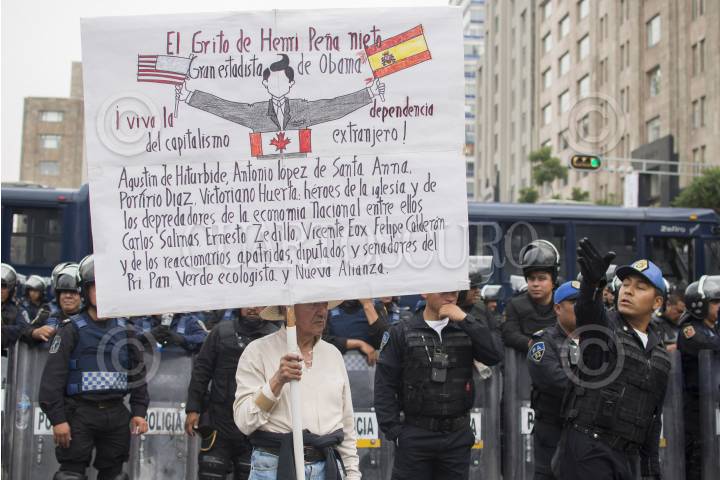 El Grito de Henri Peña nieto
Gran estadista de Obama
¡viva la dependencia
del capitalismo extranjero!
Agustín de Hiturbide, Antonio lópez de Santa Anna,
Porfirio Díaz, Victoriano Huerta: héroes de la iglesia y de
los depredadores de la economía Nacional entre ellos
Carlos Salinas Ernesto Zedillo, Vicente Fox, Felipe Calderón
y de los reaccionarios apátridas, diputados y senadores del
Pri Pan Verde ecologista y Nueva Alianza.
POLICIA
POLICIA